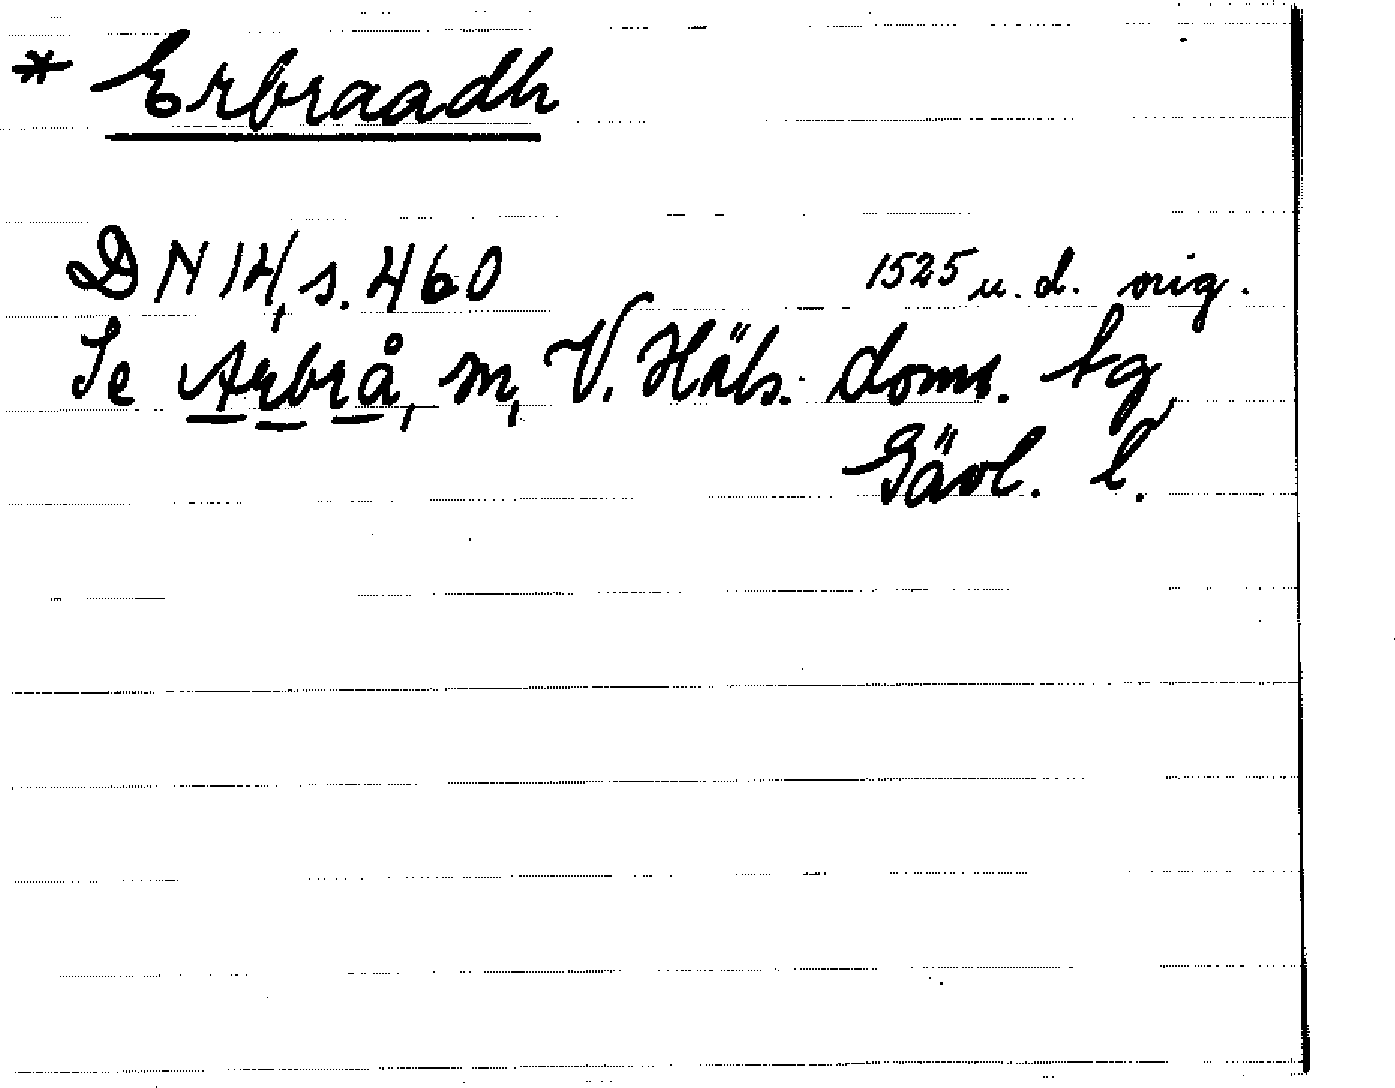 * Erbraadh
DN 14, s. 460 1525 u. d. orig.
Se Arbrå, sn, V. Häls. doms. tg,
Gävl. l.